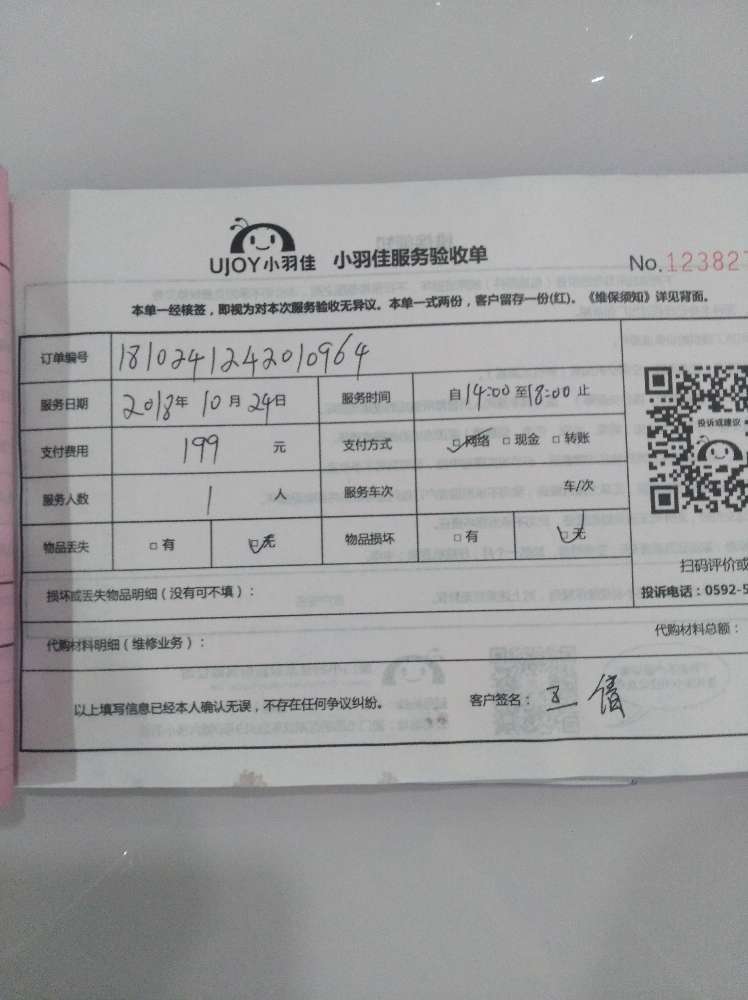 UJOY小羽佳 小羽佳服务验收单
No.123827
本单一经核签，即视为对本次服务验收无异议。本单一式两份，客户留存一份(红)。《维保须知》详见背面。
订单编号 1810241242010964
服务日期 2018年 10月 24日 服务时间 自14:00至18:00止
支付费用 199 元 支付方式 □网络 □现金 □转账
投诉或建议
服务人数 1 人 服务车次 车/次
物品丢失 □有 □无 物品损坏 □有 □无
扫码评价或
损坏或丢失物品明细（没有可不填）：
投诉电话：0592-5
代购材料明细（维修业务）： 代购材料总额：
以上填写信息已经本人确认无误，不存在任何争议纠纷。 客户签名：王倩